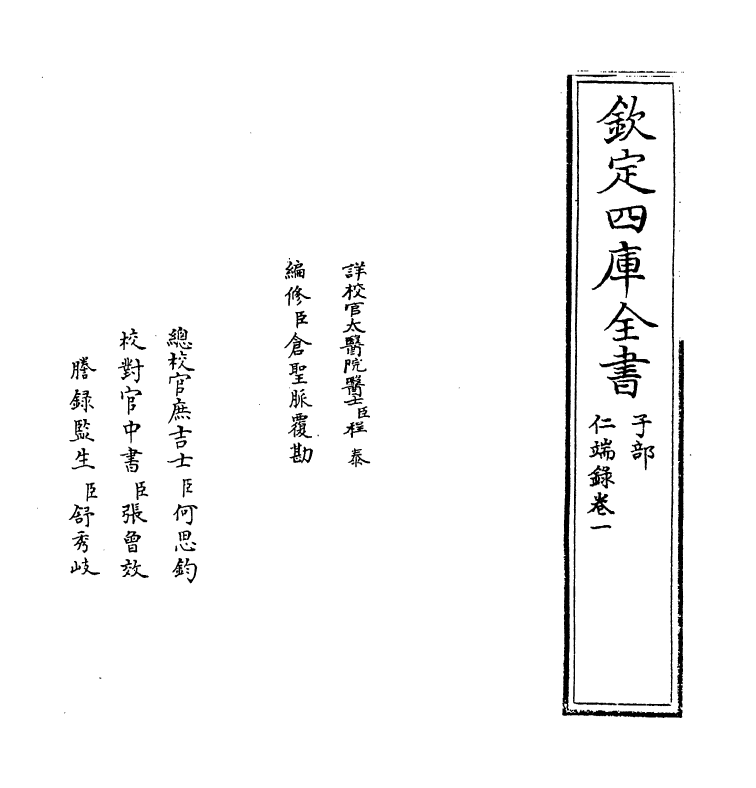 欽定四庫全書
子部
仁端錄卷一
詳校官太醫院醫士臣程泰
編修臣倉聖脈覆勘
總校官庶吉士臣何思鈞
校對官中書臣張曾效
謄錄監生臣舒秀岐